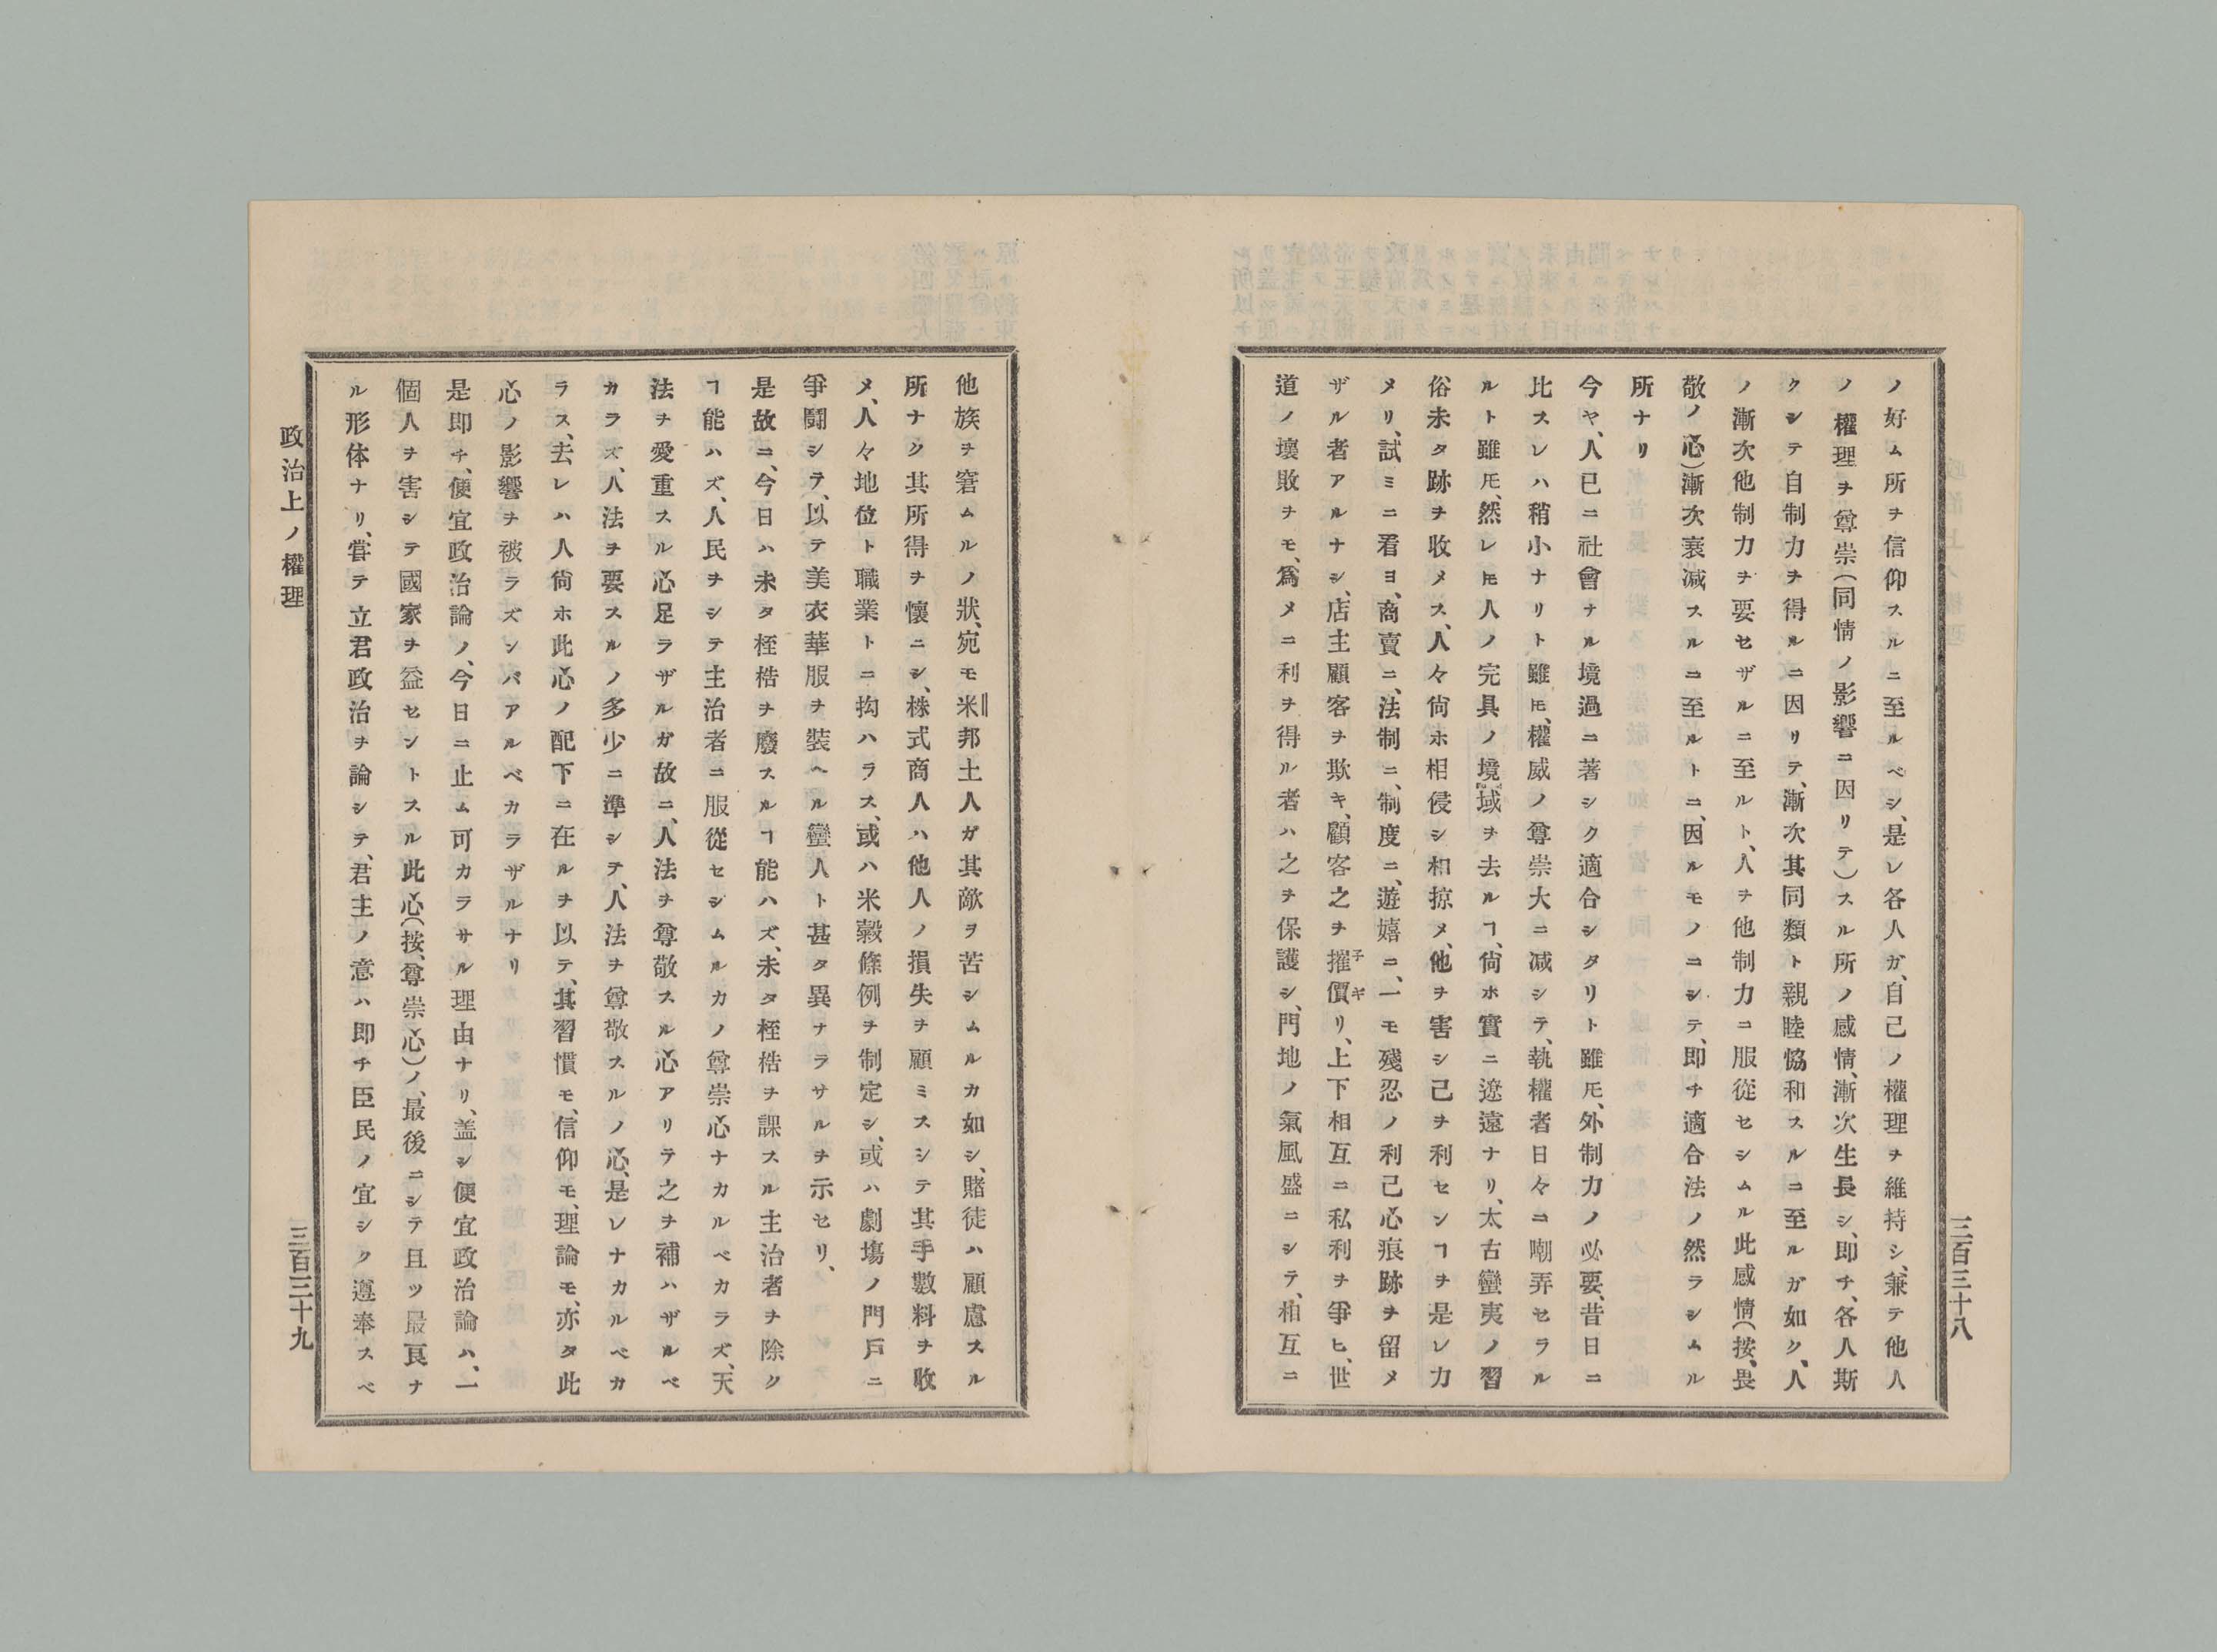 ノ好ム所ヲ信仰スルニ至ルベシ、是レ各人ガ、自己ノ權理ヲ維持シ、兼テ他人
ノ權理ヲ尊崇(同情ノ影響ニ因リテ)スル所ノ感情、漸次生長シ、即チ、各人斯
クシテ自制力ヲ得ルニ因リテ、漸次其同類ト親睦恊和スルニ至ルガ如ク、人
ノ漸次他制力ヲ要セザルニ至ルト、人ヲ他制力ニ服從セシムル此感情(按、畏
敬ノ心)漸次衰减スルニ至ルトニ、因ルモノニシテ、即チ適合法ノ然ラシムル
所ナリ
今ヤ、人已ニ社會ナル境過ニ著シク適合シタリト雖𪜈、外制力ノ必要、昔日ニ
比スレハ稍小ナリト雖𪜈、權威ノ尊崇大ニ减シテ、執權者日々ニ嘲弄セラル
ルト雖𪜈、然レ𪜈人ノ完具ノ境域ヲ去ルヿ、尙ホ實ニ遼遠ナリ、太古蠻夷ノ習
俗未タ跡ヲ收メス、人々尙ホ相侵シ相掠メ、他ヲ害シ己ヲ利センヿヲ是レ力
メリ、試ミニ看ヨ、商賣ニ、法制ニ、制度ニ、遊嬉ニ、一モ殘忍ノ利己心痕跡ヲ留メ
ザル者アルナシ、店主顧客ヲ欺キ、顧客之ヲ摧價リ、上下相互ニ私利ヲ爭ヒ、世
子ギ
道ノ壞敗ヲモ、爲メニ利ヲ得ル者ハ之ヲ保護シ、門地ノ氣風盛ニシテ、相互ニ
三百三十八
他族ヲ窘ムルノ狀、宛モ米邦土人ガ其敵ヲ苦シムルカ如シ、賭徒ハ顧慮スル
所ナク其所得ヲ懷ニシ、株式商人ハ他人ノ損失ヲ顧ミスシテ其手數料ヲ收
メ、人々地位ト職業トニ拘ハラス、或ハ米穀條例ヲ制定シ、或ハ劇塲ノ門戶ニ
爭鬪シテ、以テ美衣華服ヲ裝ヘル蠻人ト甚タ異ナラサルヲ示セリ、
是故ニ、今日ハ未タ桎梏ヲ廢スルヿ能ハズ、未タ桎梏ヲ課スル主治者ヲ除ク
ヿ能ハズ、人民ヲシテ主治者ニ服從セシムルカノ尊崇心ナカルベカラズ、天
法ヲ愛重スル心足ラザルガ故ニ、人法ヲ尊敬スル心アリテ之ヲ補ハザルベ
カラズ、人法ヲ要スルノ多少ニ準シテ、人法ヲ尊敬スルノ心、是レナカルベカ
ラス、去レハ人尙ホ此心ノ配下ニ在ルヲ以テ、其習慣モ、信仰モ、理論モ、亦タ此
心ノ影響ヲ被ラズンバアルベカラザルナリ
是即チ、便宜政治論ノ、今日ニ止ム可カラサル理由ナリ、盖シ便宜政治論ハ、一
個人ヲ害シテ國家ヲ益セントスル此心(按、尊崇心)ノ、最後ニシテ且ツ最良ナ
ル形体ナリ、甞テ立君政治ヲ論シテ、君主ノ意ハ即チ臣民ノ宜シク遵奉スベ
政治上ノ權理
三百三十九